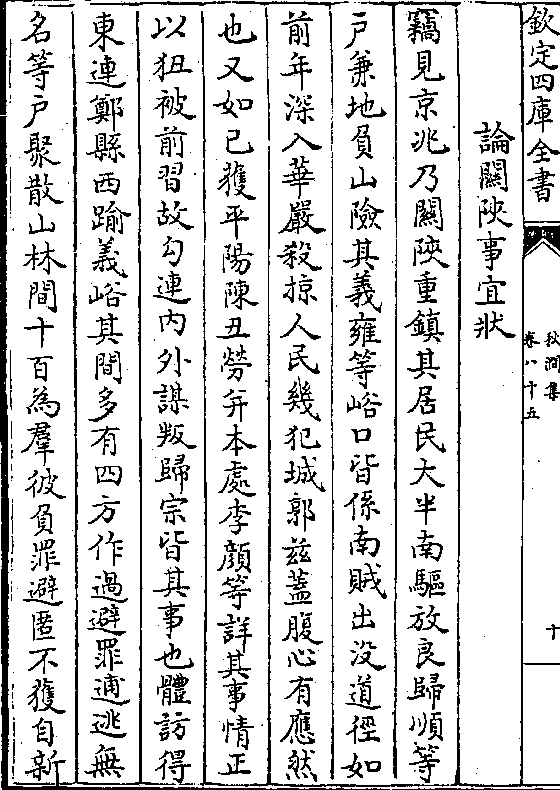 欽定四庫全書
秋澗集
卷八十五
十
論關陜事宜狀
竊見京兆乃關陜重鎮其居民大半南驅放良歸順等
戶兼地負山險其義雍等峪口皆係南賊出没道徑如
前年深入華嚴殺掠人民幾犯城郭兹蓋腹心有應然
也又如已獲平陽陳丑勞并本處李顔等詳其事情正
以狃被前習故勾連内外謀叛歸宗皆其事也體訪得
東連鄭縣西踰義峪其間多有四方作過避罪逋逃無
名等戶聚散山林間十百為羣彼負罪避匿不獲自新